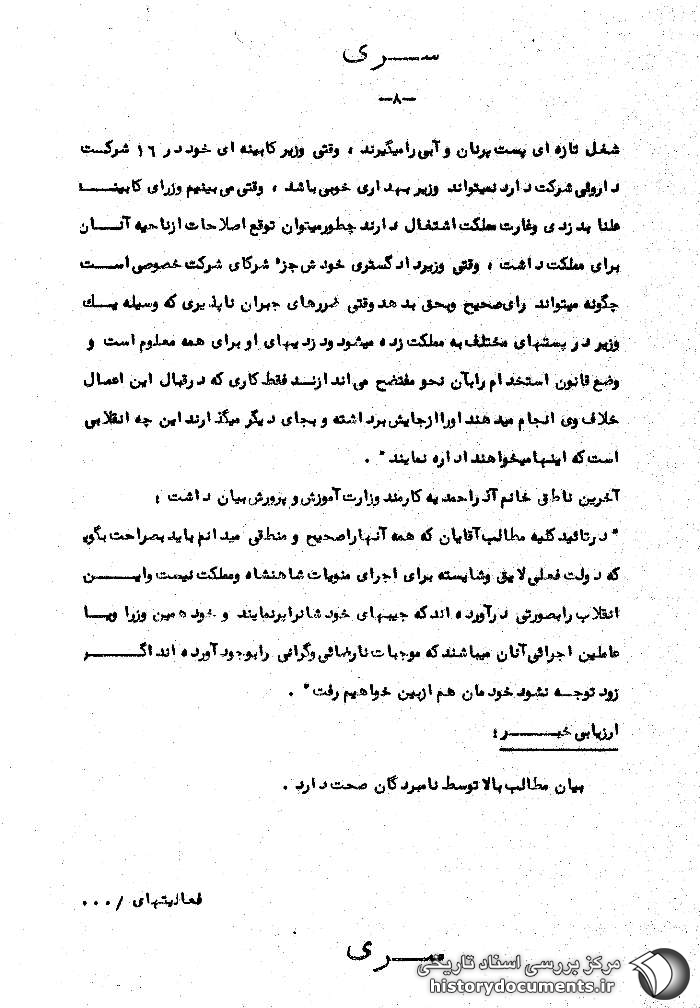 سری
-۸-
شغل تازه ای پست پرنان و آبی رامیگیرند ، وقتی وزیر کابینه ای خود در ۱۶ شرکت
داروئی شرکت دارد نمیتواند وزیر بهداری خوبی باشد ، وقتی می بینیم وزرای کابینه
علنا بدزدی وغارت مملکت اشتغال دارند چطور میتوان توقع اصلاحات از ناحیه آنان
برای مملکت داشت ، وقتی وزیر دادگستری خودش جزء شرکای شرکت خصوصی است
چگونه میتواند رای صحیح وبحق بدهد وقتی ضررهای جبران ناپذیری که وسیله یک
وزیر در پستهای مختلف به مملکت زده میشود ودزدیهای او برای همه معلوم است و
وضع قانون استخدام رابآن نحو مفتضح می اندازند فقط کاری که در قبال این اعمال
خلاف وی انجام میدهند اورا ازجایش برداشته و بجای دیگر میگذارند این چه انقلابی
است که اینها میخواهند اداره نمایند " .
آخرین ناطق خانم آذر احمدیه کارمند وزارت آموزش و پرورش بیان داشت :
" در تائید کلیه مطالب آقایان که همه آنهارا صحیح و منطقی میدانم باید بصراحت بگویم
که دولت فعلی لایق وشایسته برای اجرای منویات شاهنشاه ومملکت نیست واین
انقلاب رابصورتی درآورده اند که جیبهای خود شانرا پرنمایند و خود همین وزرا ویا
عاملین اجرائی آنان میباشند که موجبات نارضائی وگرانی رابوجود آورده اند اگر
زود توجه نشود خودمان هم ازبین خواهیم رفت " .
ارزیابی خبر :
بیان مطالب بالا توسط نامبردگان صحت دارد .
فعالیتهای / ...
سری
مرکز بررسی اسناد تاریخی
historydocuments.ir